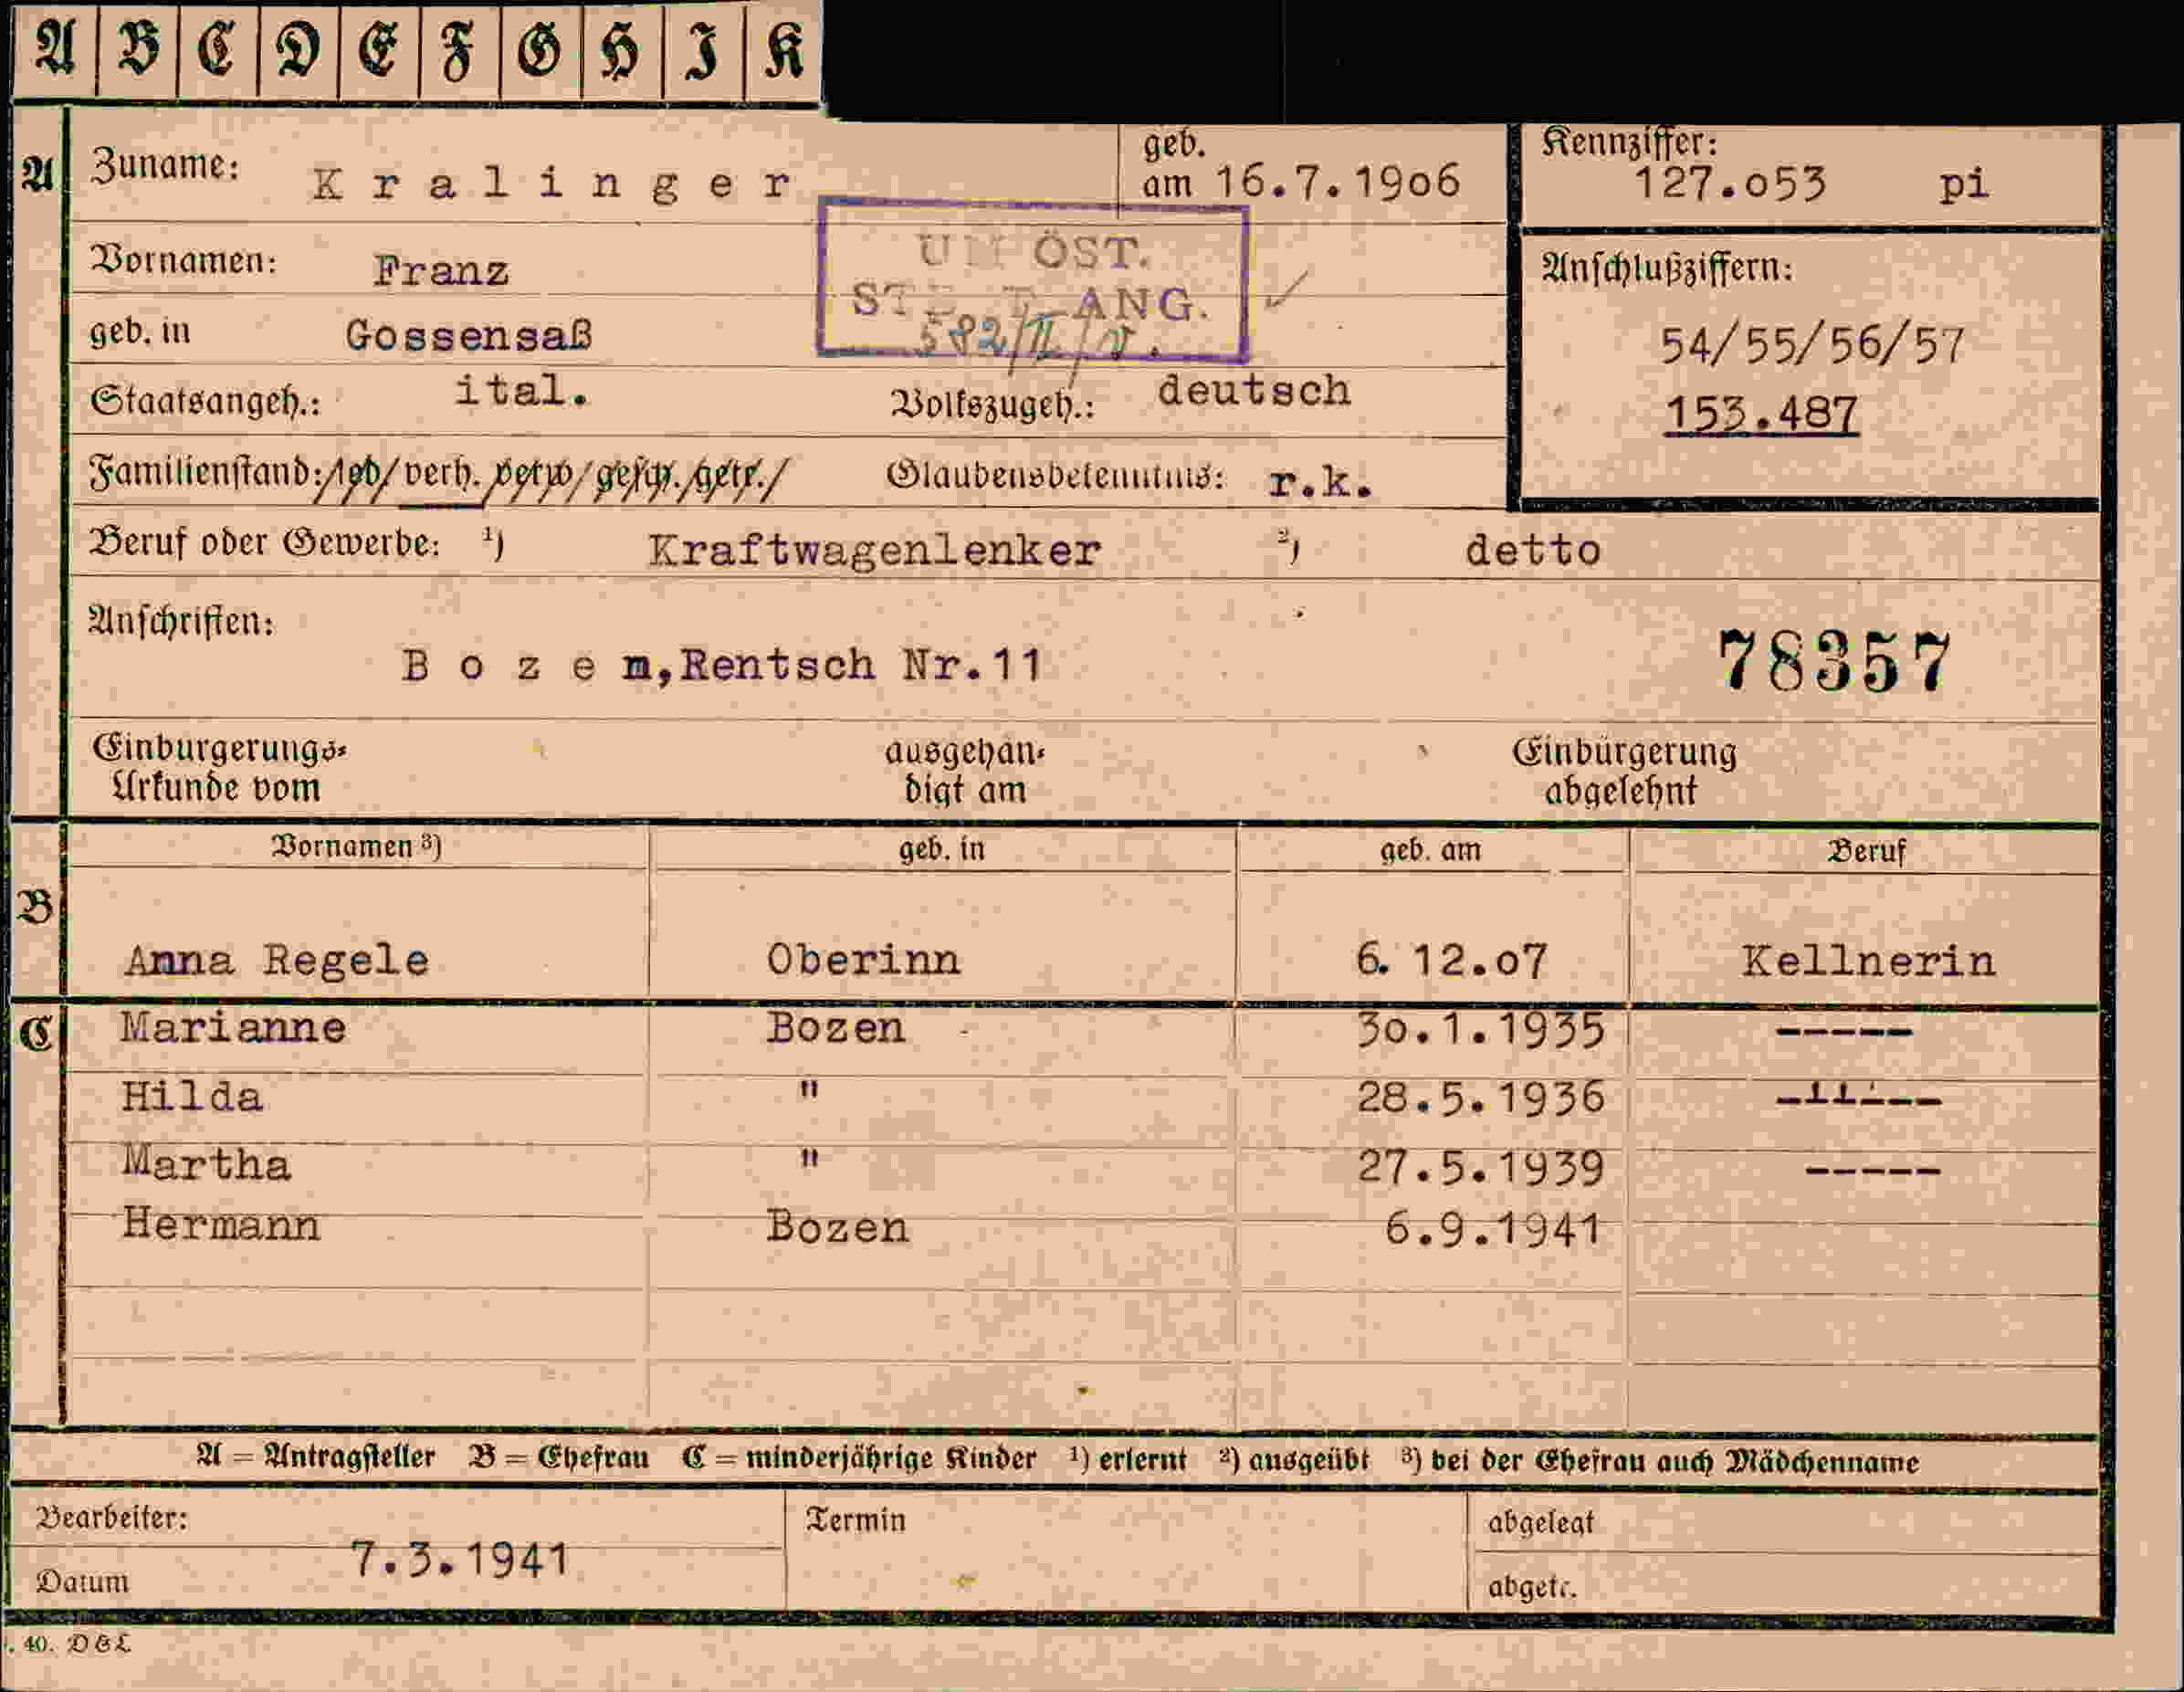 A B C D E F G H I K
A Zuname: Kralinger geb. am 16.7.1906 Kennziffer: 127.053 pi
Vornamen: Franz
UM ÖST.
ANG.
582/II/
geb. in Gossensaß
Anschlußziffern:
54/55/56/57
153.487
Staatsangeh.: ital. Volkszugeh.: deutsch
Familienstand: led/verh. verw/gesch./getr./ Glaubensbekenntnis: r.k.
Beruf oder Gewerbe: ¹) Kraftwagenlenker ²) detto
Anschriften:
Bozen,Rentsch Nr.11
78357
Einbürgerungs- ausgehän- Einbürgerung
Urkunde vom digt am abgelehnt
B Vornamen ³) geb. in geb. am Beruf
Anna Regele Oberinn 6. 12.07 Kellnerin
C Marianne Bozen - 30.1.1935 -----
Hilda " 28.5.1936
Martha " 27.5.1939 -----
Hermann Bozen 6.9.1941
A = Antragsteller B = Ehefrau C = minderjährige Kinder ¹) erlernt ²) ausgeübt ³) bei der Ehefrau auch Mädchenname
Bearbeiter: Termin abgelegt
7.3.1941
Datum abgetr.
. 40. DGL